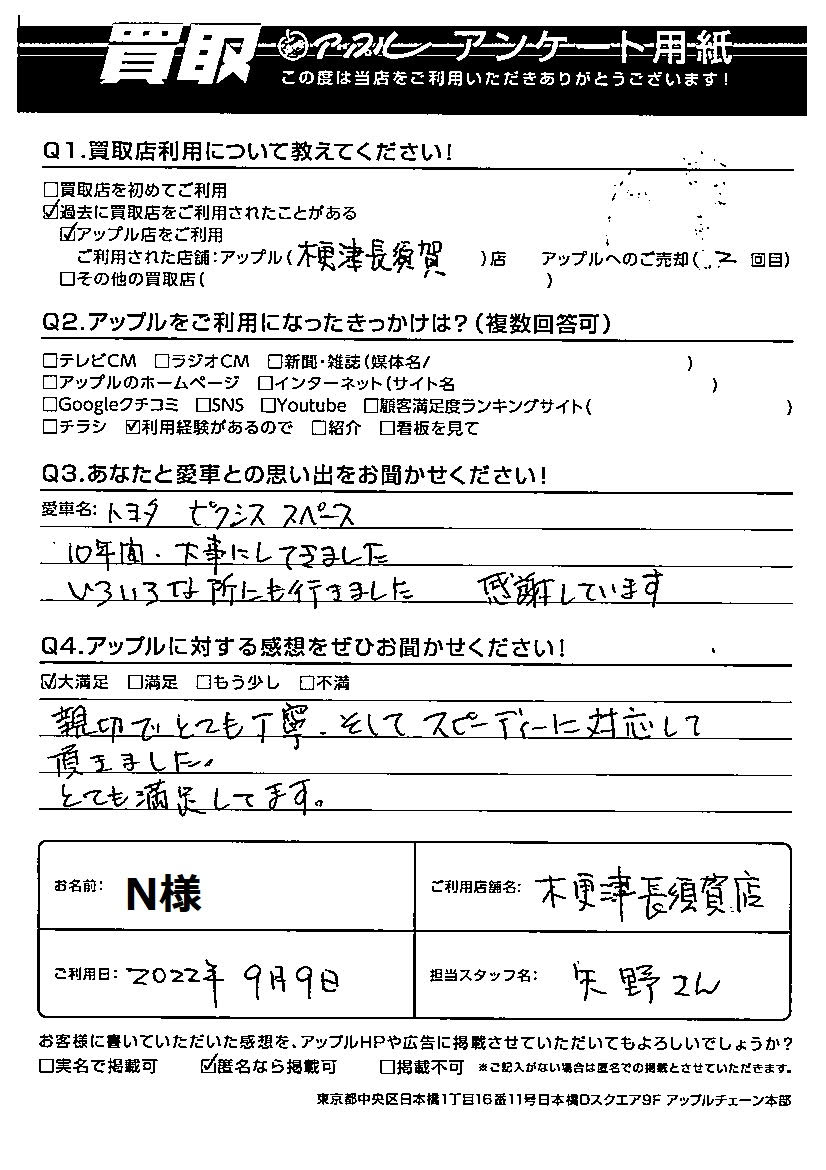 買取 アップル アンケート用紙
この度は当店をご利用いただきありがとうございます!
Q1.買取店利用について教えてください!
□買取店を初めてご利用
☑過去に買取店をご利用されたことがある
☑アップル店をご利用
ご利用された店舗:アップル(木更津長須賀)店 アップルへのご売却(2回目)
□その他の買取店( )
Q2.アップルをご利用になったきっかけは?(複数回答可)
□テレビCM □ラジオCM □新聞・雑誌(媒体名/ )
□アップルのホームページ □インターネット(サイト名 )
□Googleクチコミ □SNS □Youtube □顧客満足度ランキングサイト( )
□チラシ ☑利用経験があるので □紹介 □看板を見て
Q3.あなたと愛車との思い出をお聞かせください!
愛車名:トヨタ ピクシス スペース
10年間、大事にしてきました
いろいろな所にも行きました 感謝しています
Q4.アップルに対する感想をぜひお聞かせください!
☑大満足 □満足 □もう少し □不満
親切でとても丁寧、そしてスピーディーに対応して
頂きました。
とても満足してます。
お名前: N様 ご利用店舗名: 木更津長須賀店
ご利用日: 2022年9月9日 担当スタッフ名: 矢野さん
お客様に書いていただいた感想を、アップルHPや広告に掲載させていただいてもよろしいでしょうか?
□実名で掲載可 ☑匿名なら掲載可 □掲載不可 ※ご記入がない場合は匿名での掲載とさせていただきます。
東京都中央区日本橋1丁目16番11号日本橋Dスクエア9F アップルチェーン本部